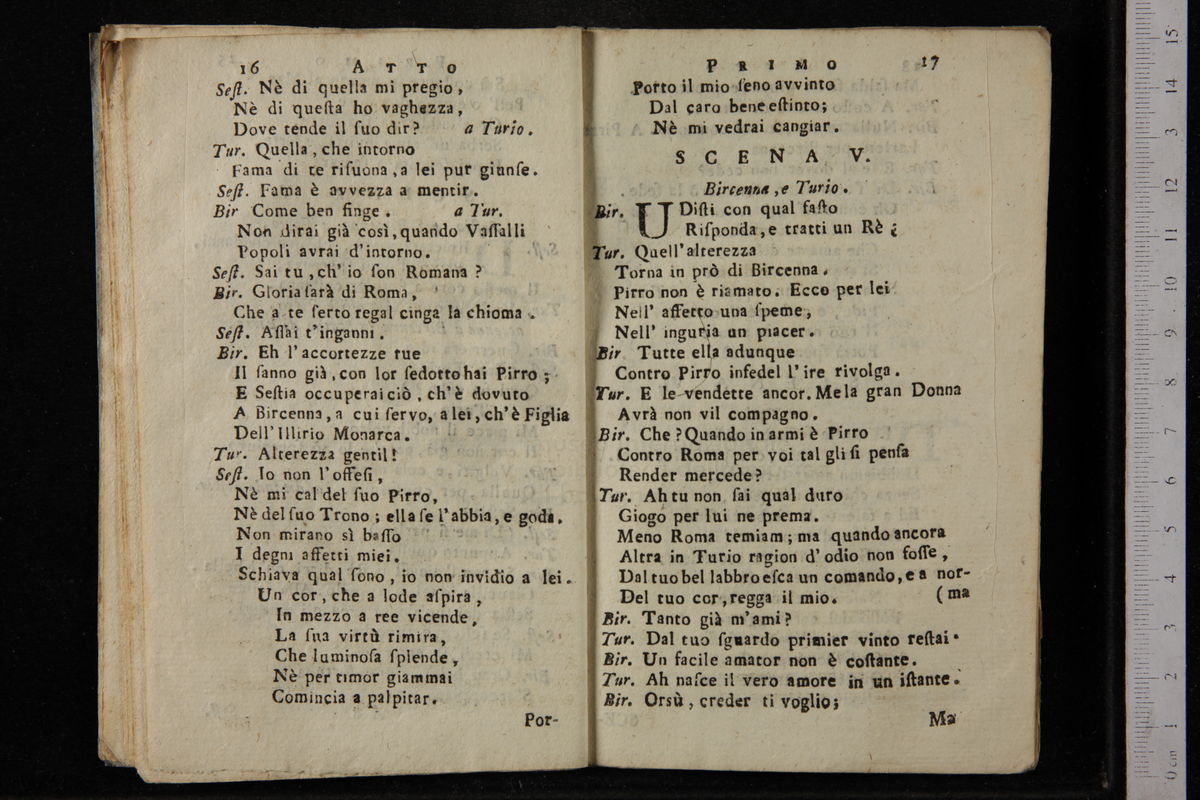 16 ATTO
Seſt. Nè di quella mi pregio,
Nè di queſta ho vaghezza,
Dove tende il ſuo dir? a Turio.
Tur. Quella, che intorno
Fama di te riſuona, a lei pur giunſe.
Seſt. Fama è avvezza a mentir.
Bir Come ben finge. a Tur.
Non dirai già così, quando Vaſſalli
Popoli avrai d'intorno.
Seſt. Sai tu, ch' io ſon Romana?
Bir. Gloria ſarà di Roma,
Che a te ſerto regal cinga la chioma.
Seſt. Aſſai t'inganni.
Bir. Eh l'accortezze tue
Il ſanno già, con lor ſedotto hai Pirro;
E Seſtia occuperai ciò, ch'è dovuto
A Bircenna, a cui ſervo, a lei, ch'è Figlia
Dell'Illirio Monarca.
Tur. Alterezza gentil!
Seſt. Io non l'offeſi,
Nè mi cal del ſuo Pirro,
Nè del ſuo Trono; ella ſe l'abbia, e goda.
Non mirano sì baſſo
I degni affetti miei.
Schiava qual ſono, io non invidio a lei.
Un cor, che a lode aſpira,
In mezzo a ree vicende,
La ſua virtù rimira,
Che luminoſa ſplende,
Nè per timor giammai
Comincia a palpitar.
Por-
PRIMO 17
Porto il mio ſeno avvinto
Dal caro bene eſtinto;
Nè mi vedrai cangiar.
SCENA V.
Bircenna, e Turio.
Bir. UDiſti con qual faſto
Riſponda, e tratti un Rè¿
Tur. Quell'alterezza
Torna in prò di Bircenna.
Pirro non è riamato. Ecco per lei
Nell' affetto una ſpeme,
Nell' inguria un piacer.
Bir Tutte ella adunque
Contro Pirro infedel l'ire rivolga.
Tur. E le vendette ancor. Me la gran Donna
Avrà non vil compagno.
Bir. Che? Quando in armi è Pirro
Contro Roma per voi tal gli ſi penſa
Render mercede?
Tur. Ah tu non ſai qual duro
Giogo per lui ne prema.
Meno Roma temiam; ma quando ancora
Altra in Turio ragion d'odio non foſſe,
Dal tuo bel labbro eſca un comando, e a nor-
Del tuo cor, regga il mio. (ma
Bir. Tanto già m'ami?
Tur. Dal tuo ſguardo primier vinto reſtai.
Bir. Un facile amator non è coſtante.
Tur. Ah naſce il vero amore in un iſtante.
Bir. Orsù, creder ti voglio;
Ma